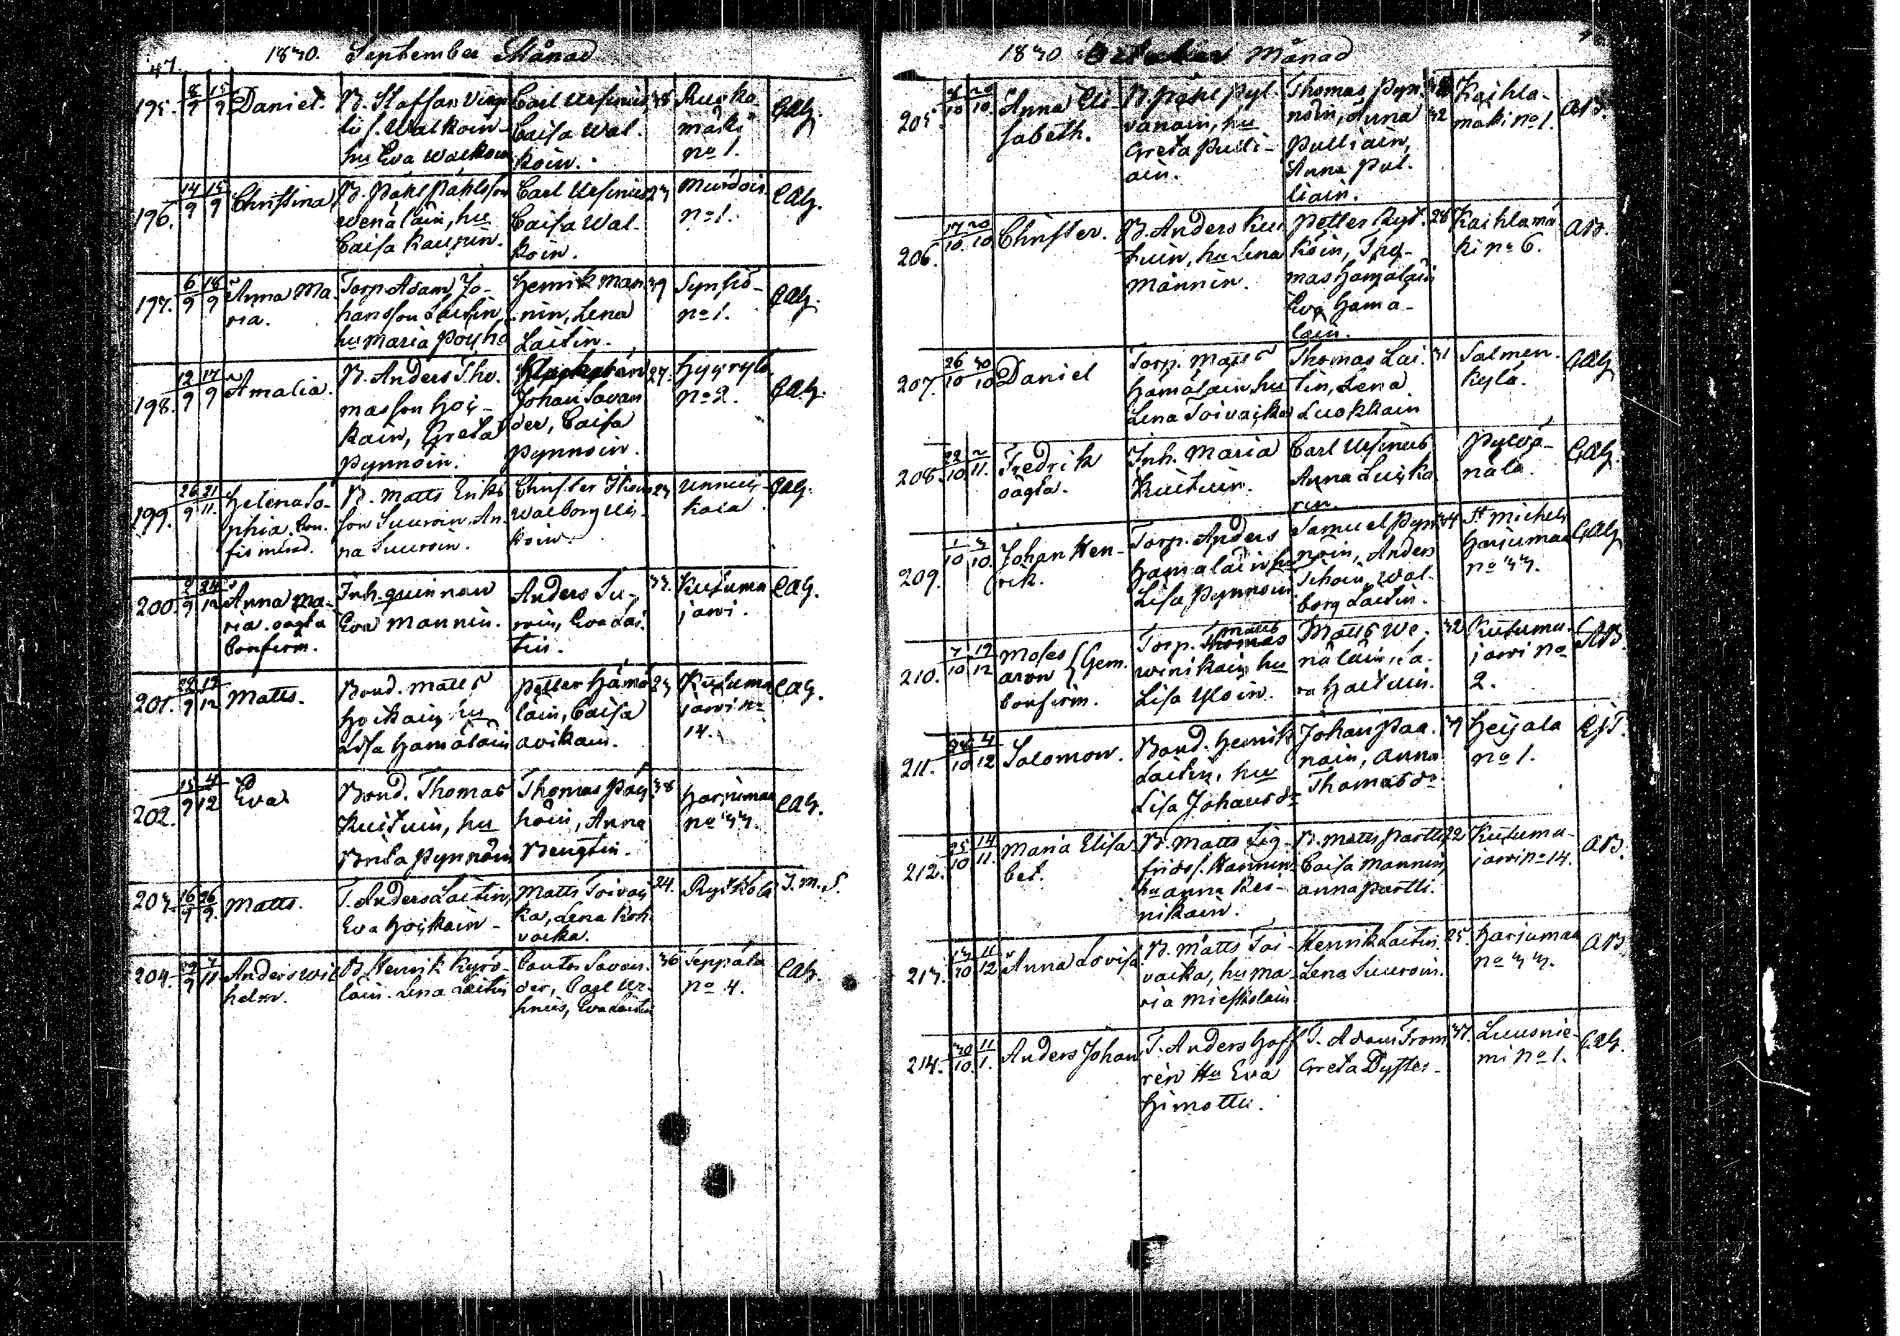 47.
1830. September Månad
195. 8/9 15/9 Daniel. B. Staffan
Walkoin
hu Eva Walkoin
Carl Ursinus
Caisa Wal-
koin.
38 Rucka-
mäki
no 1.
CAG.
196. 14/9 15/9 Christina
B. Påhl Påhlsson
Wenäläin, hu
Caisa Kaupin.
Carl Ursinus
Caisa Wal-
koin.
23 Murdois
no 1.
CAG.
197. 6/9 18/9 Anna Ma-
ria.
Torp. Adam Jo-
hansson Laitin
hu Maria Poyhö
Henrik Man-
nin, Lena
Laitin.
39 Synsiö
no 1.
CAG.
198. 12/9 17/9 Amalia.
B. Anders Tho-
masson Hoi-
kain, Greta
Pynnöin.
Johan Savan
der, Caisa
Pynnöin.
27. Hyyrylä
no 2.
CAG.
199. 26/9 21/11. Helena So-
phia. Con-
firmerad.
B. Matts Eriks
son Suuroin. An-
na Suuroin.
Christer
Walborg
koin.
23 Unnui-
kala
CAG.
200. 24/12 Anna Ma-
ria. oägta
Confirm.
Inh. quinnan
Eva Mannin.
Anders Su-
roin, Eva Lai-
tin.
33. Kutuma
jarvi.
CAG.
201. 12/12 Matts.
Bond. Matts
Hoikain, hu
Lisa Hämäläin
Petter Hämä
läin, Caisa
Avikain.
23 Kutuma
jarvi no
14.
CAG.
202. 15/9 4/12 Eva
Bond. Thomas
Kuituin, hu
Brita Pynnöin
Thomas Pöy
höin, Anna
Bengtin.
38 Harjumaa
no 33.
CAG.
203. 16/9 26/9. Matts.
T. Anders Laitin,
Eva Hoikain
Matts Toivai
ka, Lena Koh
vacka.
24. Rydkola
J. M. S.
204. 29/9 7/11 Anders Wil
helm.
B. Henrik Kyrö-
läin. Lena Laitin
Cantor Savan-
der, Carl Ur-
sinus, Eva Laitin
36 Seppälä
no 4.
CAG.
1830 October Månad
205. 8/10 20/10. Anna Eli
sabeth.
B. Påhl Pyl-
vänäin, hu
Greta Pulli-
ain.
Thomas Pyn-
nöin, Anna
Pulliain,
Anna Pul-
liain.
32 Kaihla-
mäki no 1.
AB.
206. 17/10 20/10 Christer.
B. Anders Kui
tuin, hu Lena
Männin.
Petter Ryd-
köin, Tho-
mas Hämäläin
Eva Hämä-
läin.
28 Kaihlamä
ki no 6.
AB.
207. 26/10 30/10 Daniel
Torp. Matts
Hämäläin, hu
Lena Toivaika
Thomas Lai-
tin, Lena
Luokkain
31 Salmen-
kylä.
CAG
208. 22/10 2/11. Fredrik
oägta.
Inh. Maria
Kuituin.
Carl Ursinus
Anna Luika
rin.
Pylvä-
nälä.
CAG
209. 1/10 3/10. Johan Hen-
rik.
Torp. Anders
Hämäläin hu
Lisa Pynnöin
Samuel Pyn
nöin, Anders
Tihoin, Wal-
borg Laitin.
34 St Michels
Harjumaa
no 33.
CAG
210. 7/10 12/12 Moses } Gem.
Aron
Confirm.
Torp. Thomas Matts
Winikain, hu
Lisa Yloin.
Matts We-
näläin, Sa-
ra Hartuin.
32 Kutuma-
jarvi no
2.
AB
211. 26/10 4/12 Salomon.
Bond. Henrik
Laitin, hu
Lisa Johansdr
Johan Paa-
nain, Anna
Thomasdr
39 Heijala
no 1.
EJT.
212. 25/10 14/11. Maria Elisa
bet.
B. Matts Sig-
frids s. Hannin
hu Anna Rei-
nikain.
B. Matts Partti
Caisa Mannin,
Anna Partti.
22 Kutuma-
jarvi no 14.
AB.
213. 13/10 11/12 Anna Lovisa
B. Matts Toi-
vacka, hu Ma-
ria Mieskolain
Henrik Laitin,
Lena Suuroin.
25. Harjumaa
no 33.
AB
214. 30/10. 11/1. Anders Johan
T. Anders Hoff
ren Hu Eva
Himottu.
T. Adam From
Greta Dyster
37. Luusnie-
mi no 1.
CAG.